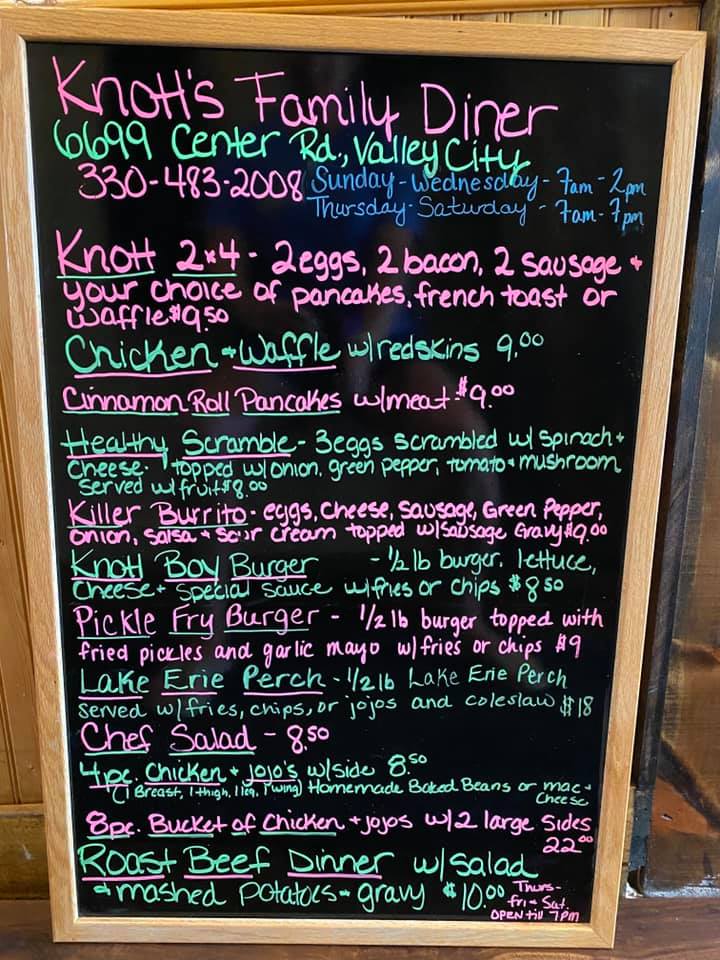 Knott's Family Diner
6699 Center Rd., Valley City
330-483-2008 Sunday-Wednesday- 7am-2pm
Thursday-Saturday - 7am-7pm
Knott 2x4 - 2 eggs, 2 bacon, 2 sausage +
your choice of pancakes, french toast or
waffle $9.50
Chicken + Waffle w/redskins 9.00
Cinnamon Roll Pancakes w/meat - $9.00
Healthy Scramble - 3 eggs scrambled w/ spinach +
cheese. topped w/ onion, green pepper, tomato + mushroom
served w/ fruit $8.00
Killer Burrito - eggs, Cheese, Sausage, Green Pepper,
onion, salsa + sour cream topped w/sausage Gravy $9.00
Knott Boy Burger - 1/2 lb burger, lettuce,
cheese + special sauce w/fries or chips $8.50
Pickle Fry Burger - 1/2 lb burger topped with
fried pickles and garlic mayo w/fries or chips $9
Lake Erie Perch - 1/2 lb Lake Erie Perch
served w/fries, chips, or jojos and coleslaw $18
Chef Salad - 8.50
4pc. Chicken + jojo's w/side 8.50
(1 Breast, 1 thigh, 1 leg, 1 wing) Homemade Baked Beans or mac +
cheese
8pc. Bucket of Chicken + jojos w/ 2 large sides
22.00
Roast Beef Dinner w/salad
+ mashed potatoes - gravy $10.00
Thurs-
fri - Sat.
OPEN till 7PM